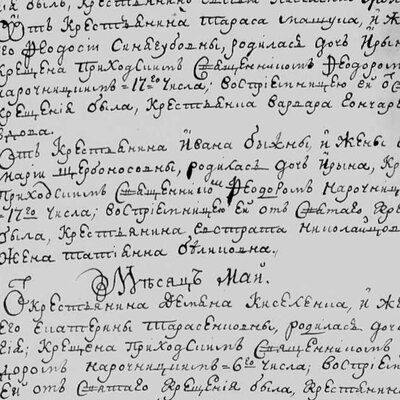 Отъ Крестьянина Тараса Мащула, и Ж
его Феодосіи Синягубовны, родилась дочь Ирын
Крещена Приходскимъ Священникомъ Феодором
нарочницкимъ = 17го Числа; воспріемницею ей о
Крещенія была, Крестьянка Варвара Гончар
вдова.
Отъ Крестьянина Ивана быжны, и Жены
Маріи Щербоносовны, родилась дочь Ирына, К
Приходскимъ Священникомъ Феодоромъ Нарочниц
= 17го числа; воспріемницею ей отъ Святаго Кре
была, Крестьянина Евстрата Николайцов
Жена татіанна
Мѣсяцъ Май.
Отъ Крестьянина Демяна Киселенка, и Же
Его Екатерины Тарасенковны, родилась доч
Крещена Приходскимъ Священникомъ
доромъ нарочницкимъ = 6го числа; воспріе
Ей отъ Святаго Крещенія была, Крестьянин